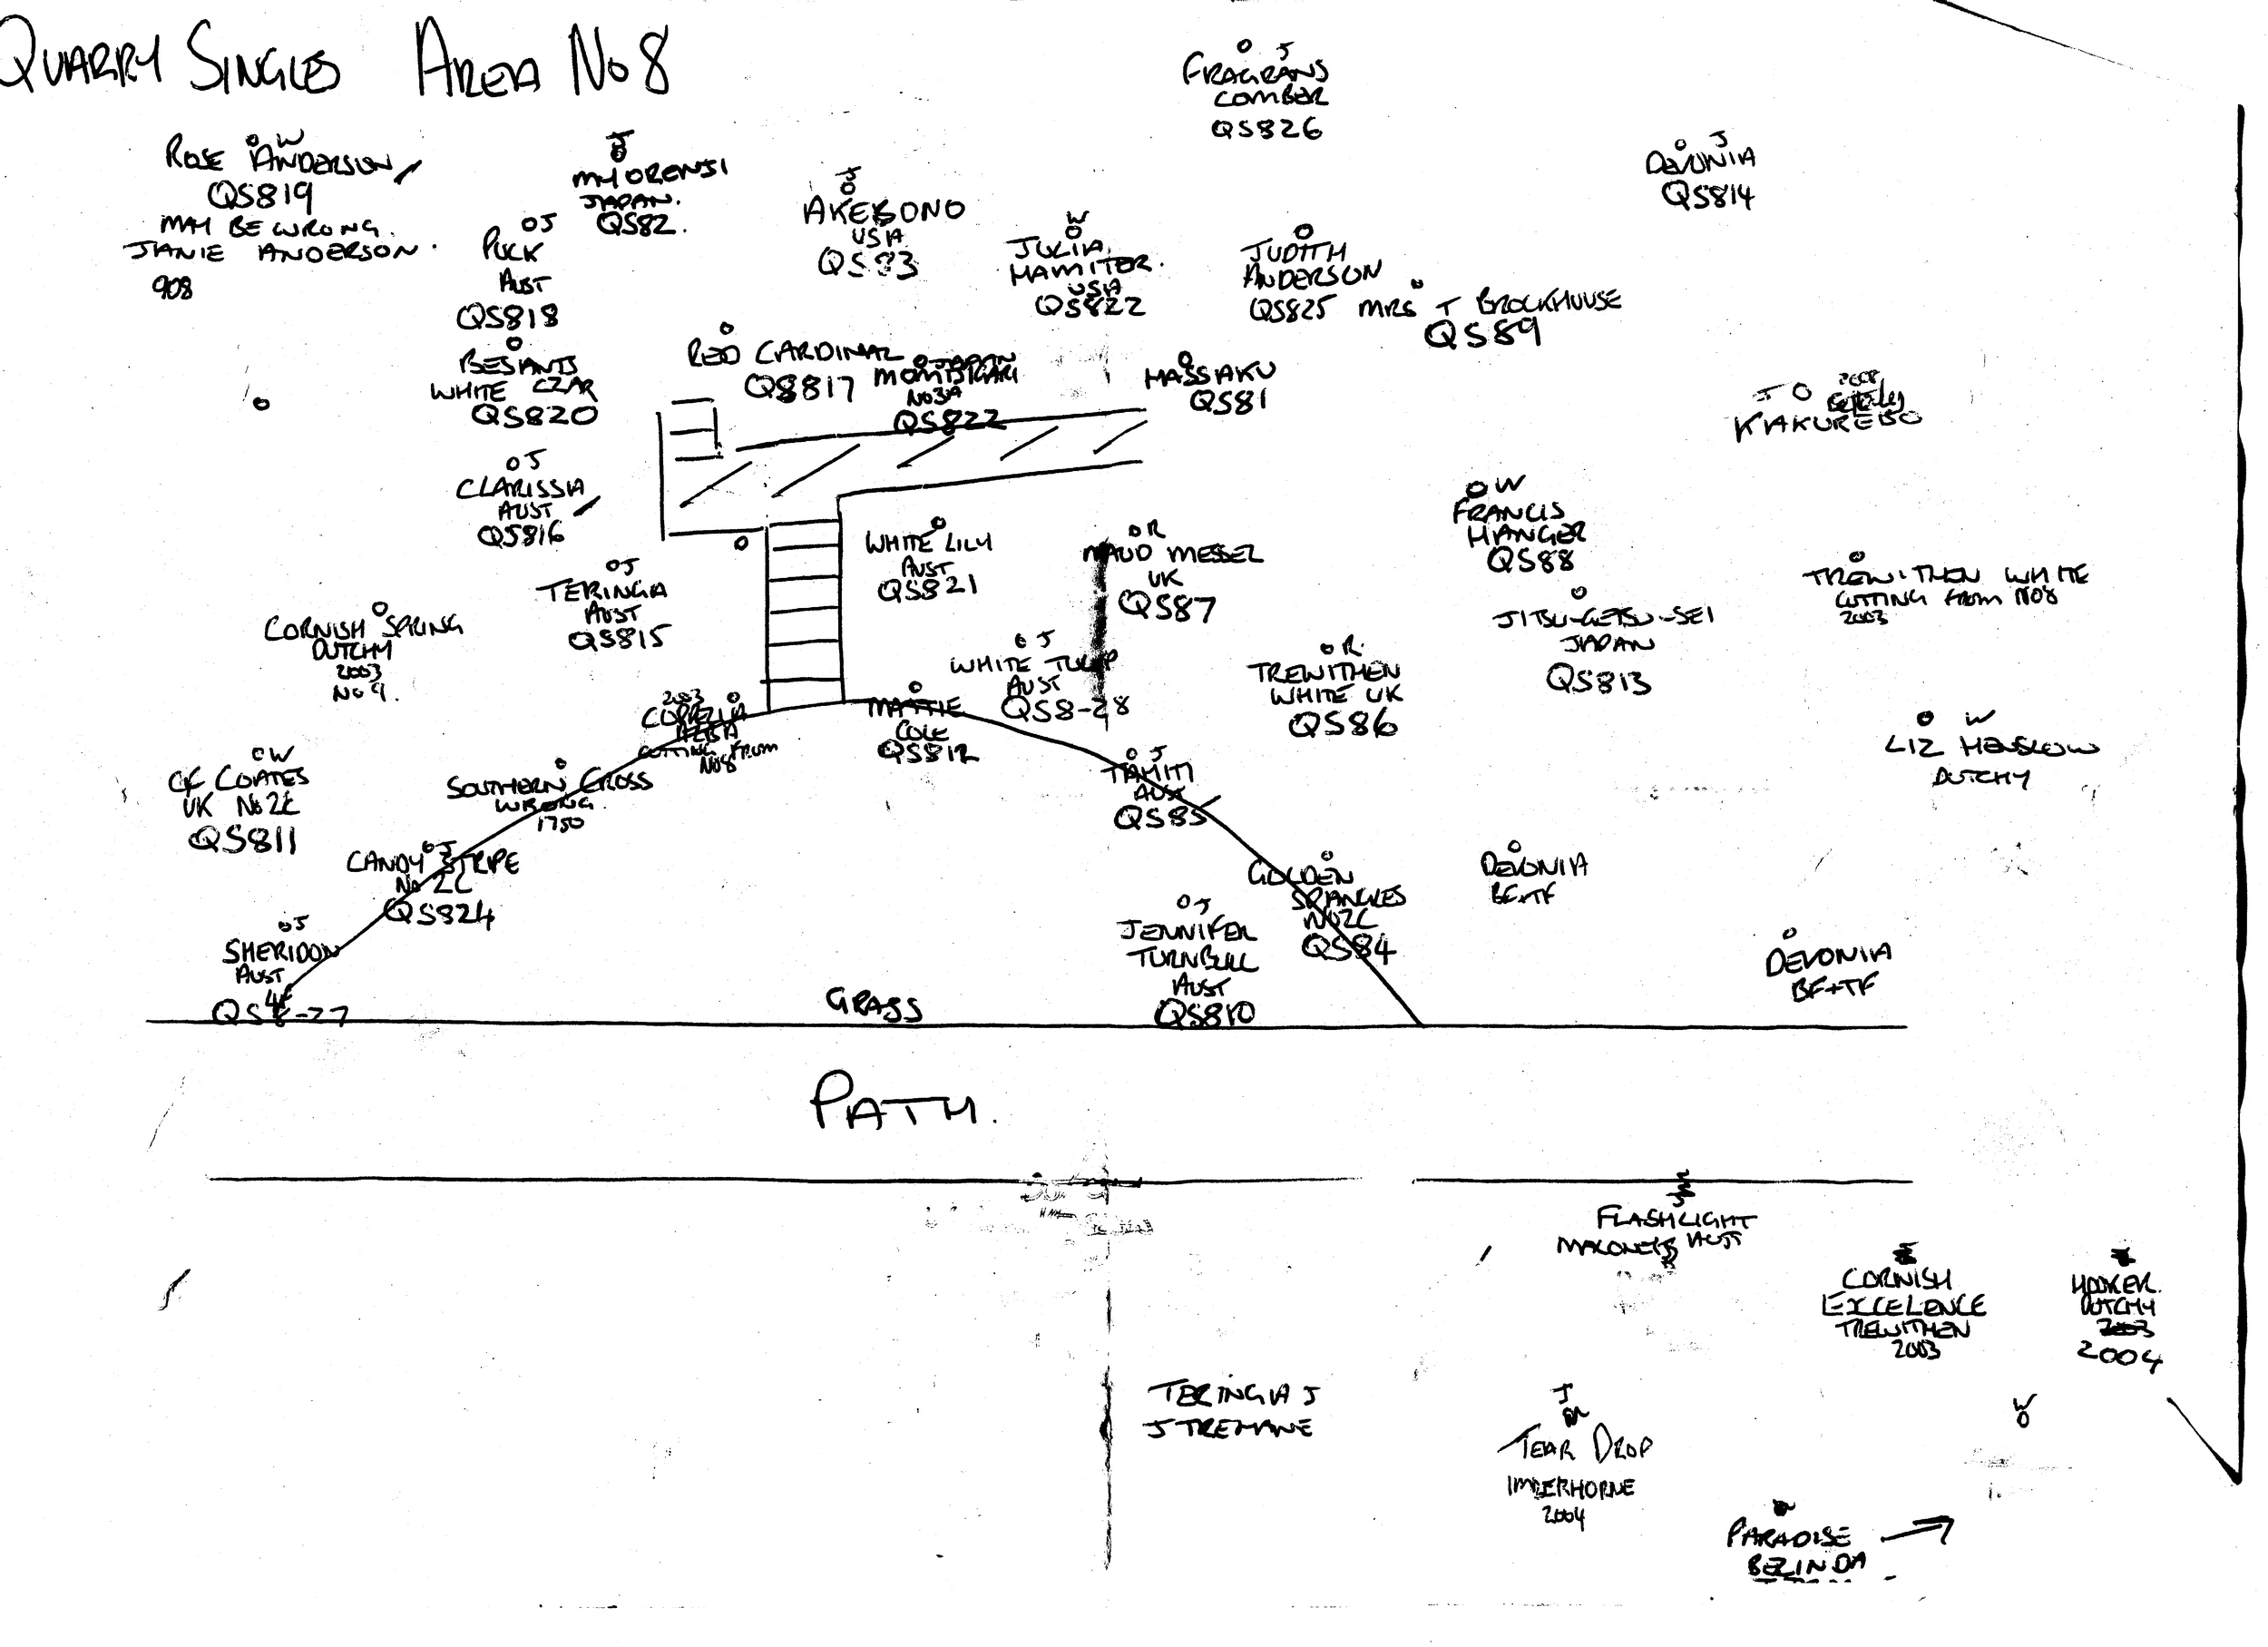 QUARRY SINGLES AREA No 8
O J
FRAGRANS
COMBER
QS826
O W
ROSE ANDERSON
QS819
MAY BE WRONG.
JANIE ANDERSON.
908
J
MYORENJI
JAPAN.
QS82.
J
AKEBONO
USA
QS83
O J
DEVONIA
QS814
OJ
PUCK
AUST
QS818
W
JULIA
HAMITER.
USA
QS822
JUDITH
ANDERSON
QS825
MRS T BROCKHOUSE
QS89
BESANTS
WHITE CZAR
QS820
RED CARDINAL
QS817
JAPAN
No3A
QS822
MASSAKU
QS81
J O 2008
KAKUREBO
OJ
CLARISSA
AUST
QS816
WHITE LILY
AUST
QS821
OR
MAUD MESSEL
UK
QS87
OW
FRANCIS
HANGER
QS88
TREWITHEN WHITE
CUTTING FROM NO8
2003
OJ
TERINGA
AUST
QS815
CORNISH SPRING
DUTCHY
2003
No 9.
JITSU-GETSU-SEI
JAPAN
QS813
O J
WHITE TULIP
AUST
QS8-28
O R.
TREWITHEN
WHITE UK
QS86
2003
CUTTING FROM
No8
MATTIE
COLE
QS812
O W
LIZ HENSLOW
DUTCHY
OW
CF COATES
UK No2C
QS811
SOUTHERN CROSS
WRONG.
1750
O J
TAHITI
AUST
QS85
OJ
CANDY STRIPE
No 2C
QS824
GOLDEN
SPANGLES
No2C
QS84
DEVONIA
BF+TF
OJ
SHERIDON
AUST
QS8-27
OJ
JENNIFER
TURNBULL
AUST
QS810
DEVONIA
BF+TF
GRASS
PATH.
FLASHLIGHT
CORNISH
EXCELENCE
TREWITHEN
2003
HOOKER.
DUTCHY
2003
2004
TERINGA J
J TREMANE
J
TEAR DROP
IMBERHORNE
2004
W
O
PARADISE
BELINDA